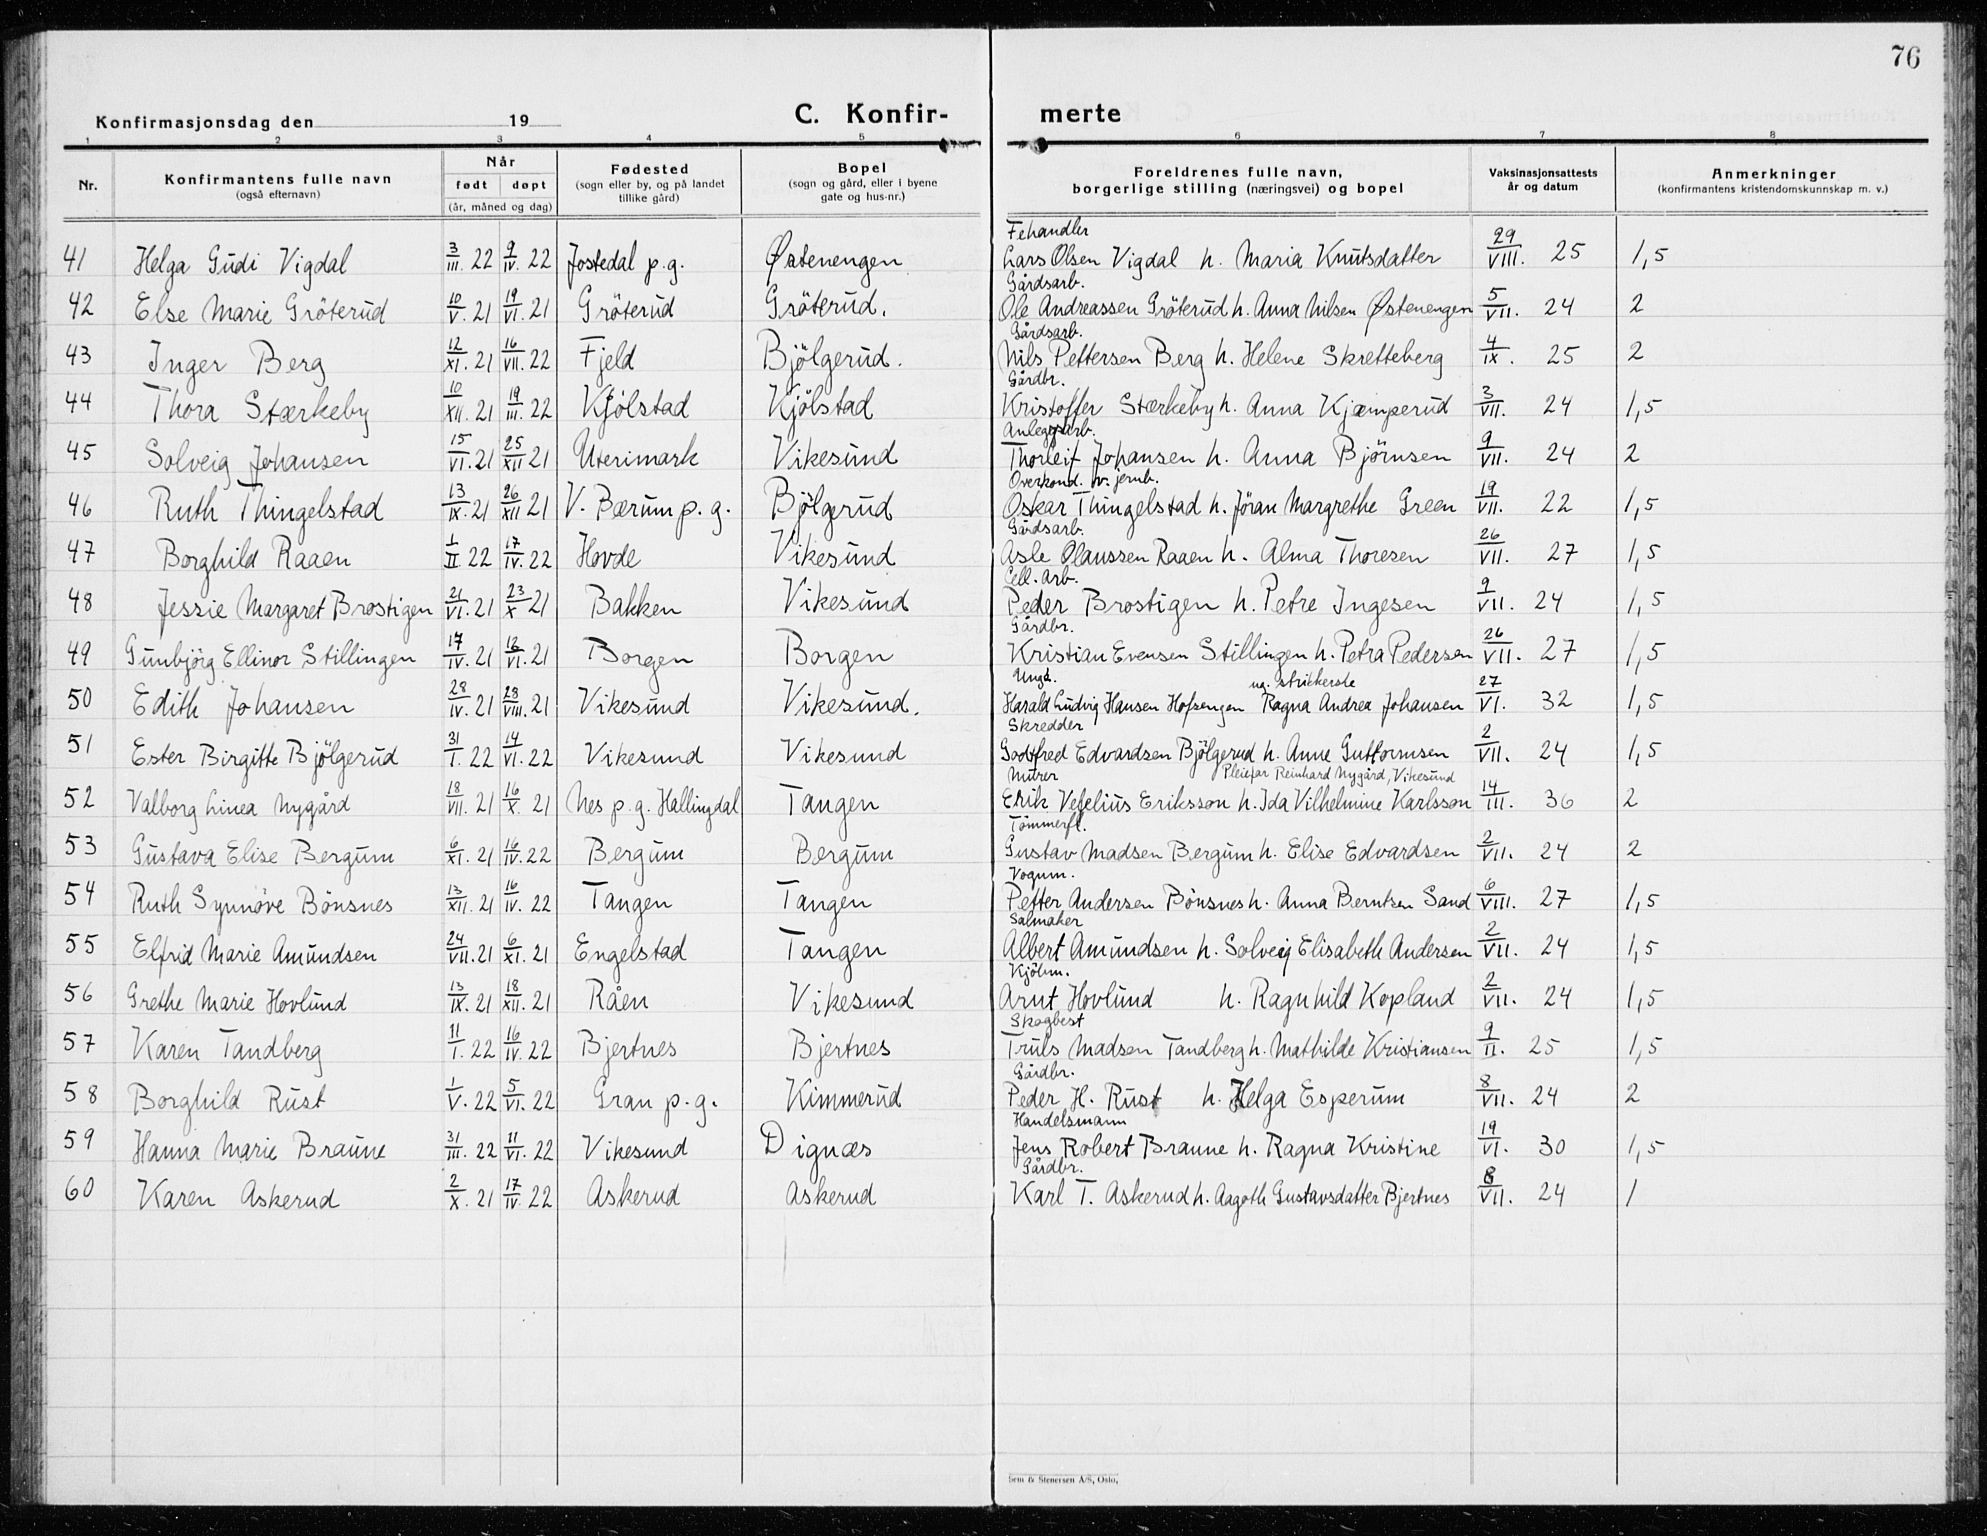 76
Konfirmasjonsdag den 19
C. Konfir-
merte
1 2 3 4 5 6 7 8
Nr.
Konfirmantens fulle navn
(også efternavn)
Når
født døpt
(år, måned og dag)
Fødested
(sogn eller by, og på landet
tillike gård)
Bopel
(sogn og gård, eller i byene
gate og hus-nr.)
Foreldrenes fulle navn,
borgerlige stilling (næringsvei) og bopel
Vaksinasjonsattests
år og datum
Anmerkninger
(konfirmantens kristendomskunnskap m. v.)
Fehandler
41 Helga Gudi Vigdal 3/III. 22 9/IV. 22 Jostedal p.g. Østenengen Lars Olsen Vigdal h. Maria Knutsdatter 29/VIII. 25 1,5
Gårdsarb.
42 Else Marie Gröterud 10/V. 21 19/VI. 21 Gröterud Gröterud. Ole Andreassen Gröterud h. Anna Nilsen Østenengen 5/VII. 24 2
Gårdsarb.
43 Inger Berg 12/XI. 21 16/VII. 22 Fjeld Bjölgerud. Nils Pettersen Berg h. Helene Skretteberg 4/IX. 25 2
Gårdbr.
44 Thora Stærkeby 10/XII. 21 19/III. 22 Kjölstad Kjölstad Kristoffer Stærkeby h. Anna Kjæmperud 3/VII. 24 1,5
Anleggsarb.
45 Solveig Johansen 15/VI. 21 25/XII 21 Uterimark Vikesund Thorleif Johansen h. Anna Björnsen 9/VII. 24 2
Overkond. v. jernb.
46 Ruth Thingelstad 13/IX. 21 26/XII 21 V. Bærum p. g. Bjölgerud Oskar Thingelstad h. Jöran Margrethe Green 19/VII. 22 1,5
Gårdsarb.
47 Borghild Raaen 1/II. 22 17/IV. 22 Hovde Vikesund Asle Olaussen Raaen h. Alma Thoresen 26/VII. 27 1,5
Cell. arb.
48 Jessie Margaret Brostigen 21/VI. 21 23/X 21 Bakken Vikesund Peder Brostigen h. Petre Ingesen 9/VII. 24 1,5
Gårdbr.
49 Gunbjörg Ellinor Stillingen 17/IV. 21 12/VI. 21 Borgen Borgen Kristian Evensen Stillingen h. Petra Pedersen 26/VII. 27 1,5
Ungk. ug. strikkerske
50 Edith Johansen 28/IV. 21 28/VIII. 21 Vikesund Vikesund. Harald Ludvig Hansen Hofsengen Ragna Andrea Johansen 27/VI. 32 1,5
Skredder
51 Ester Birgitte Bjölgerud 31/I. 22 14/VI. 22 Vikesund Vikesund Godtfred Edvardsen Bjölgerud h. Anne Guttormsen 2/VII. 24 1,5
Murer Pleiefar Reinhard Nygård, Vikesund
52 Valborg Linea Nygård 18/VII. 21 16/X. 21 Nes p. g. Hallingdal Tangen Erik Vefelius Eriksson h. Ida Vilhelmine Karlsson 14/III. 36 2
Tömmerfl.
53 Gustava Elise Bergum 6/XI. 21 16/IV. 22 Bergum Bergum Gustav Madsen Bergum h. Elise Edvardsen 2/VII. 24 2
Vognm.
54 Ruth Synnöve Bönsnes 13/XII. 21 16/IV. 22 Tangen Tangen Petter Andersen Bönsnes h. Anna Berntsen Sand 6/VIII. 27 1,5
Salmaker
55 Elfrid Marie Amundsen 24/VII. 21 6/XI. 21 Engelstad Tangen Albert Amundsen h. Solveig Elisabeth Andersen 2/VII. 24 1,5
Kjöbm.
56 Grethe Marie Hovlund 13/IX. 21 18/XII. 21 Råen Vikesund Arnt Hovlund h. Ragnhild Kopland 2/VII. 24 1,5
Skogbest
57 Karen Tandberg 11/I. 22 16/IV. 22 Bjertnes Bjertnes Truls Madsen Tandberg h. Mathilde Kristiansen 9/II. 25 1,5
Gårdbr.
58 Borghild Rust 1/V. 22 5/VI. 22 Gran p. g. Kimmerud Peder H. Rust h. Helga Esperum 8/VII. 24 2
Handelsmann
59 Hanna Marie Braune 31/III. 22 11/VI. 22 Vikesund Dignæs Jens Robert Braune h. Ragna Kristine 19/VI. 30 1,5
Gårdbr.
60 Karen Askerud 2/X. 21 17/IV. 22 Askerud Askerud Karl T. Askerud h. Aagoth Gustavsdatter Bjertnes 8/VII. 24 1
Sem & Stenersen A/S, Oslo,